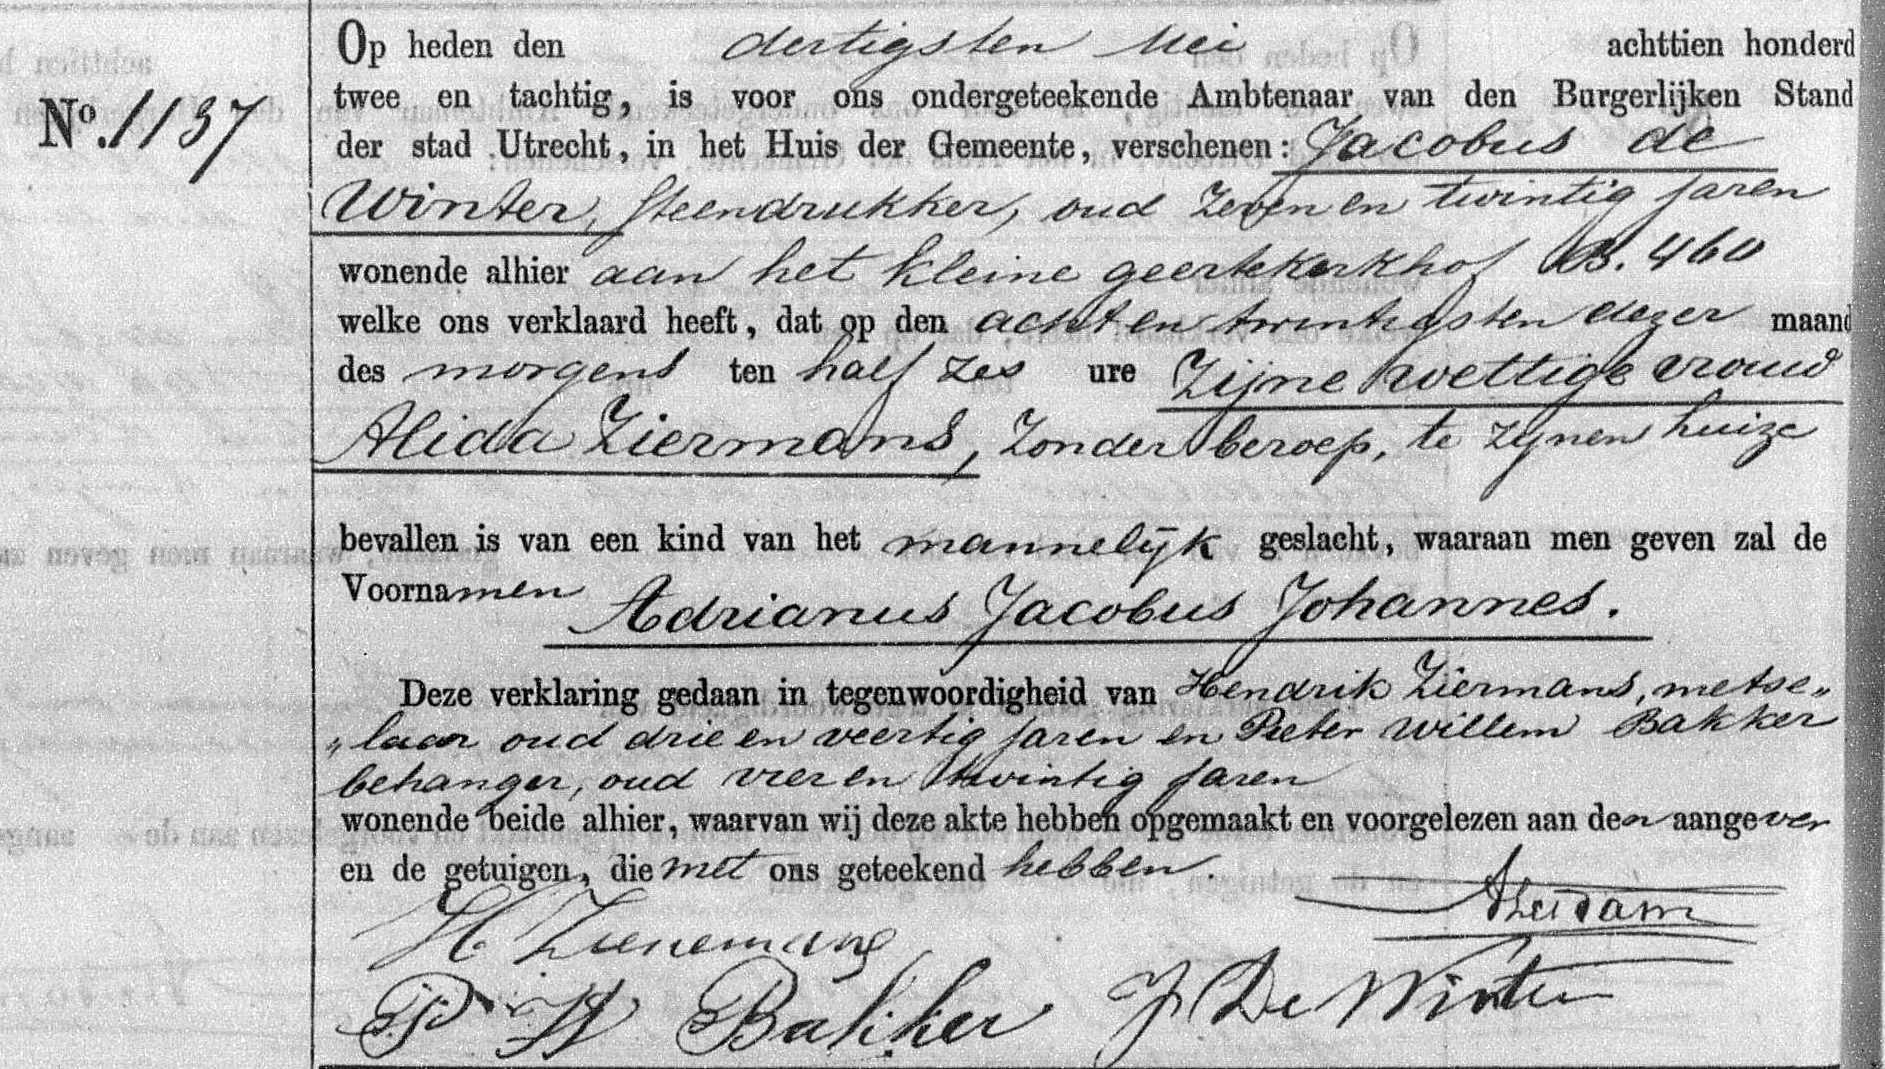 Op heden den dertigsten Mei achttien honderd
No. 1137
twee en tachtig, is voor ons ondergeteekende Ambtenaar van den Burgerlijken Stand
der stad Utrecht, in het Huis der Gemeente, verschenen: Jacobus de
Winter, Steendrukker, oud zeven en twintig jaren
wonende alhier aan het kleine geertekerkhof B. 460
welke ons verklaard heeft, dat op den acht en twintigsten dezer maand
des morgens ten half zes ure zijne wettige vrouw
Alida Ziermans, zonder beroep, te zijnen huize
bevallen is van een kind van het mannelijk geslacht, waaraan men geven zal de
Voornamen Adrianus Jacobus Johannes.
Deze verklaring gedaan in tegenwoordigheid van Hendrik Ziermans, metse„
„laar oud drie en veertig jaren en Pieter Willem Bakker
behanger, oud vier en twintig jaren
wonende beide alhier, waarvan wij deze akte hebben opgemaakt en voorgelezen aan den aangever
en de getuigen, die met ons geteekend hebben.
H.
P W Bakker J De Winter